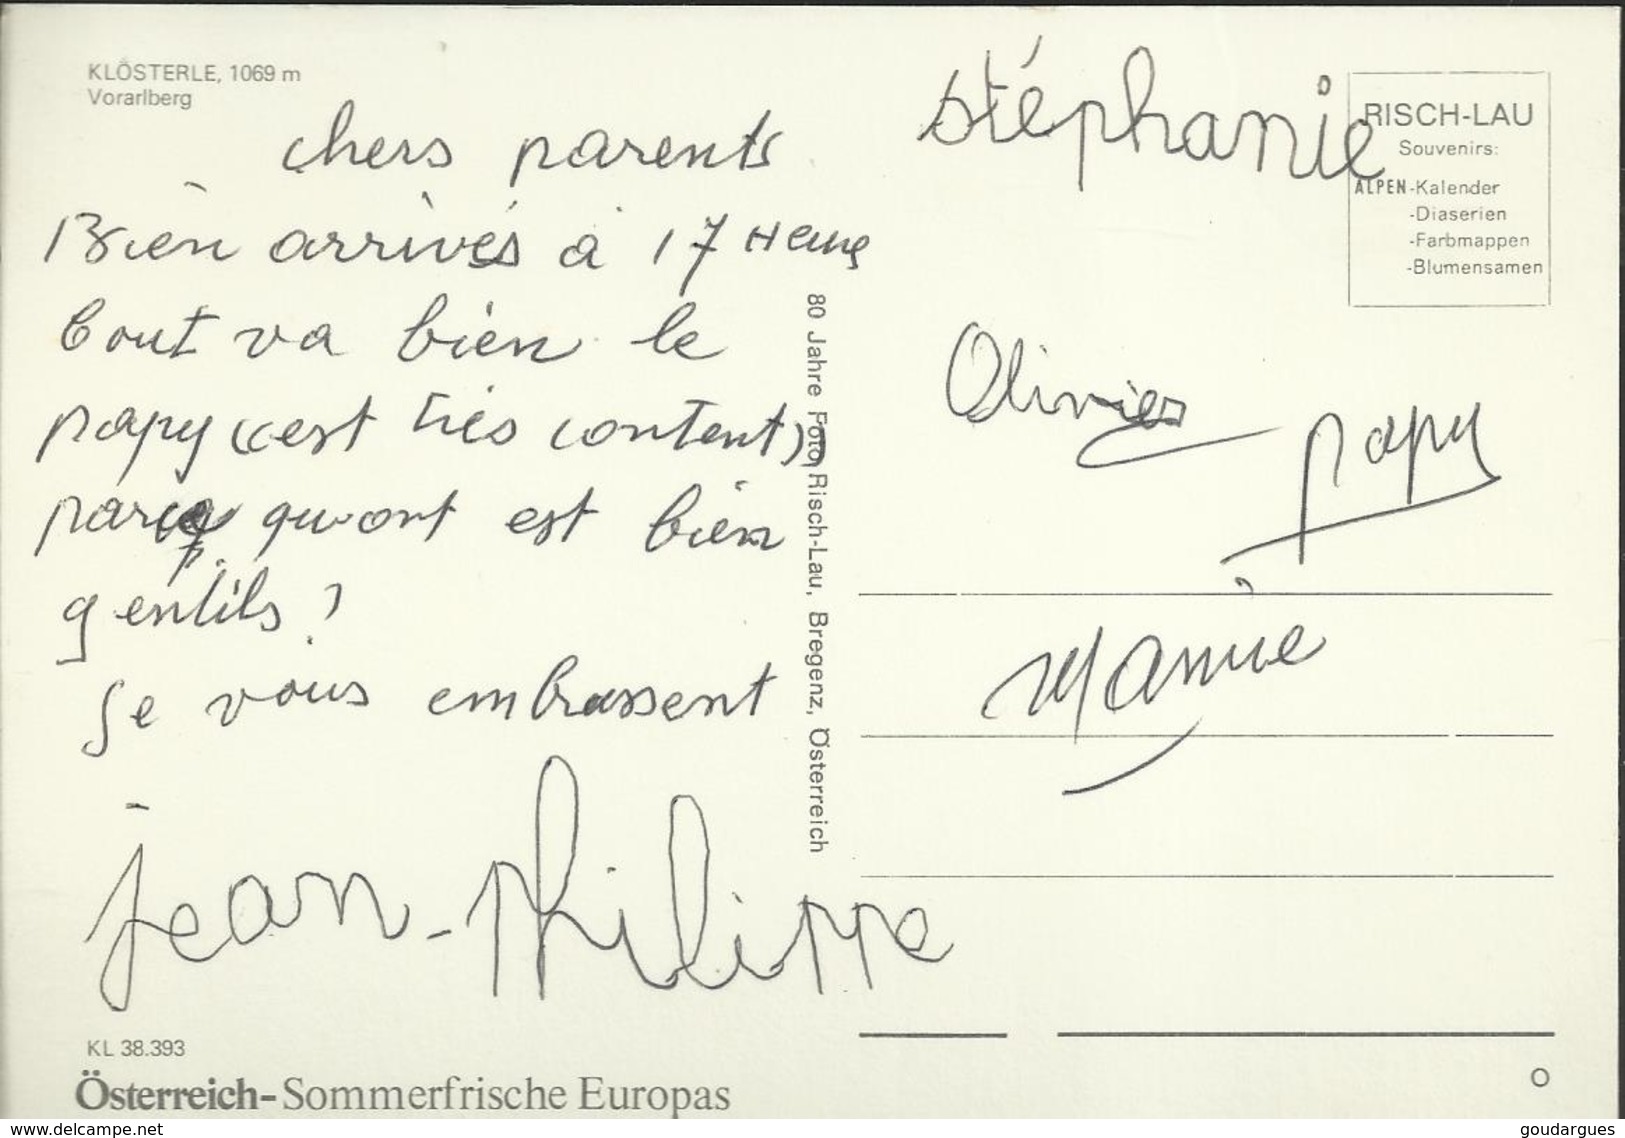 KLÖSTERLE, 1069 m
Vorarlberg
chers parents
Bien arrivés à 17 Heure
tout va bien le
papy (est très content)
parce qu'ont est bien
gentils?
je vous embrassent
jean-philippe
KL 38.393
Österreich-Sommerfrische Europas
80 Jahre Foto Risch-Lau, Bregenz, Österreich
stéphanie
RISCH-LAU
Souvenirs:
ALPEN-Kalender
-Diaserien
-Farbmappen
-Blumensamen
Olivier
papy
Mamie
O
www.delcampe.net
goudargues